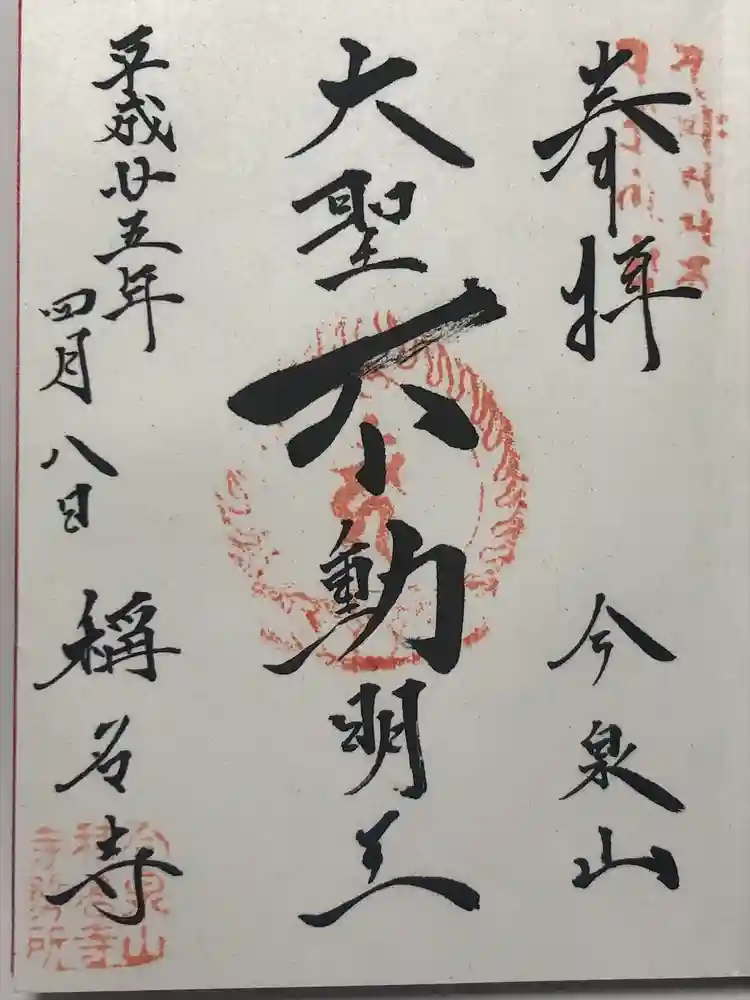 奉拝
今泉山
大聖不動明王
平成廿五年
四月八日
稱名寺
今泉山
稱名寺
寺務所